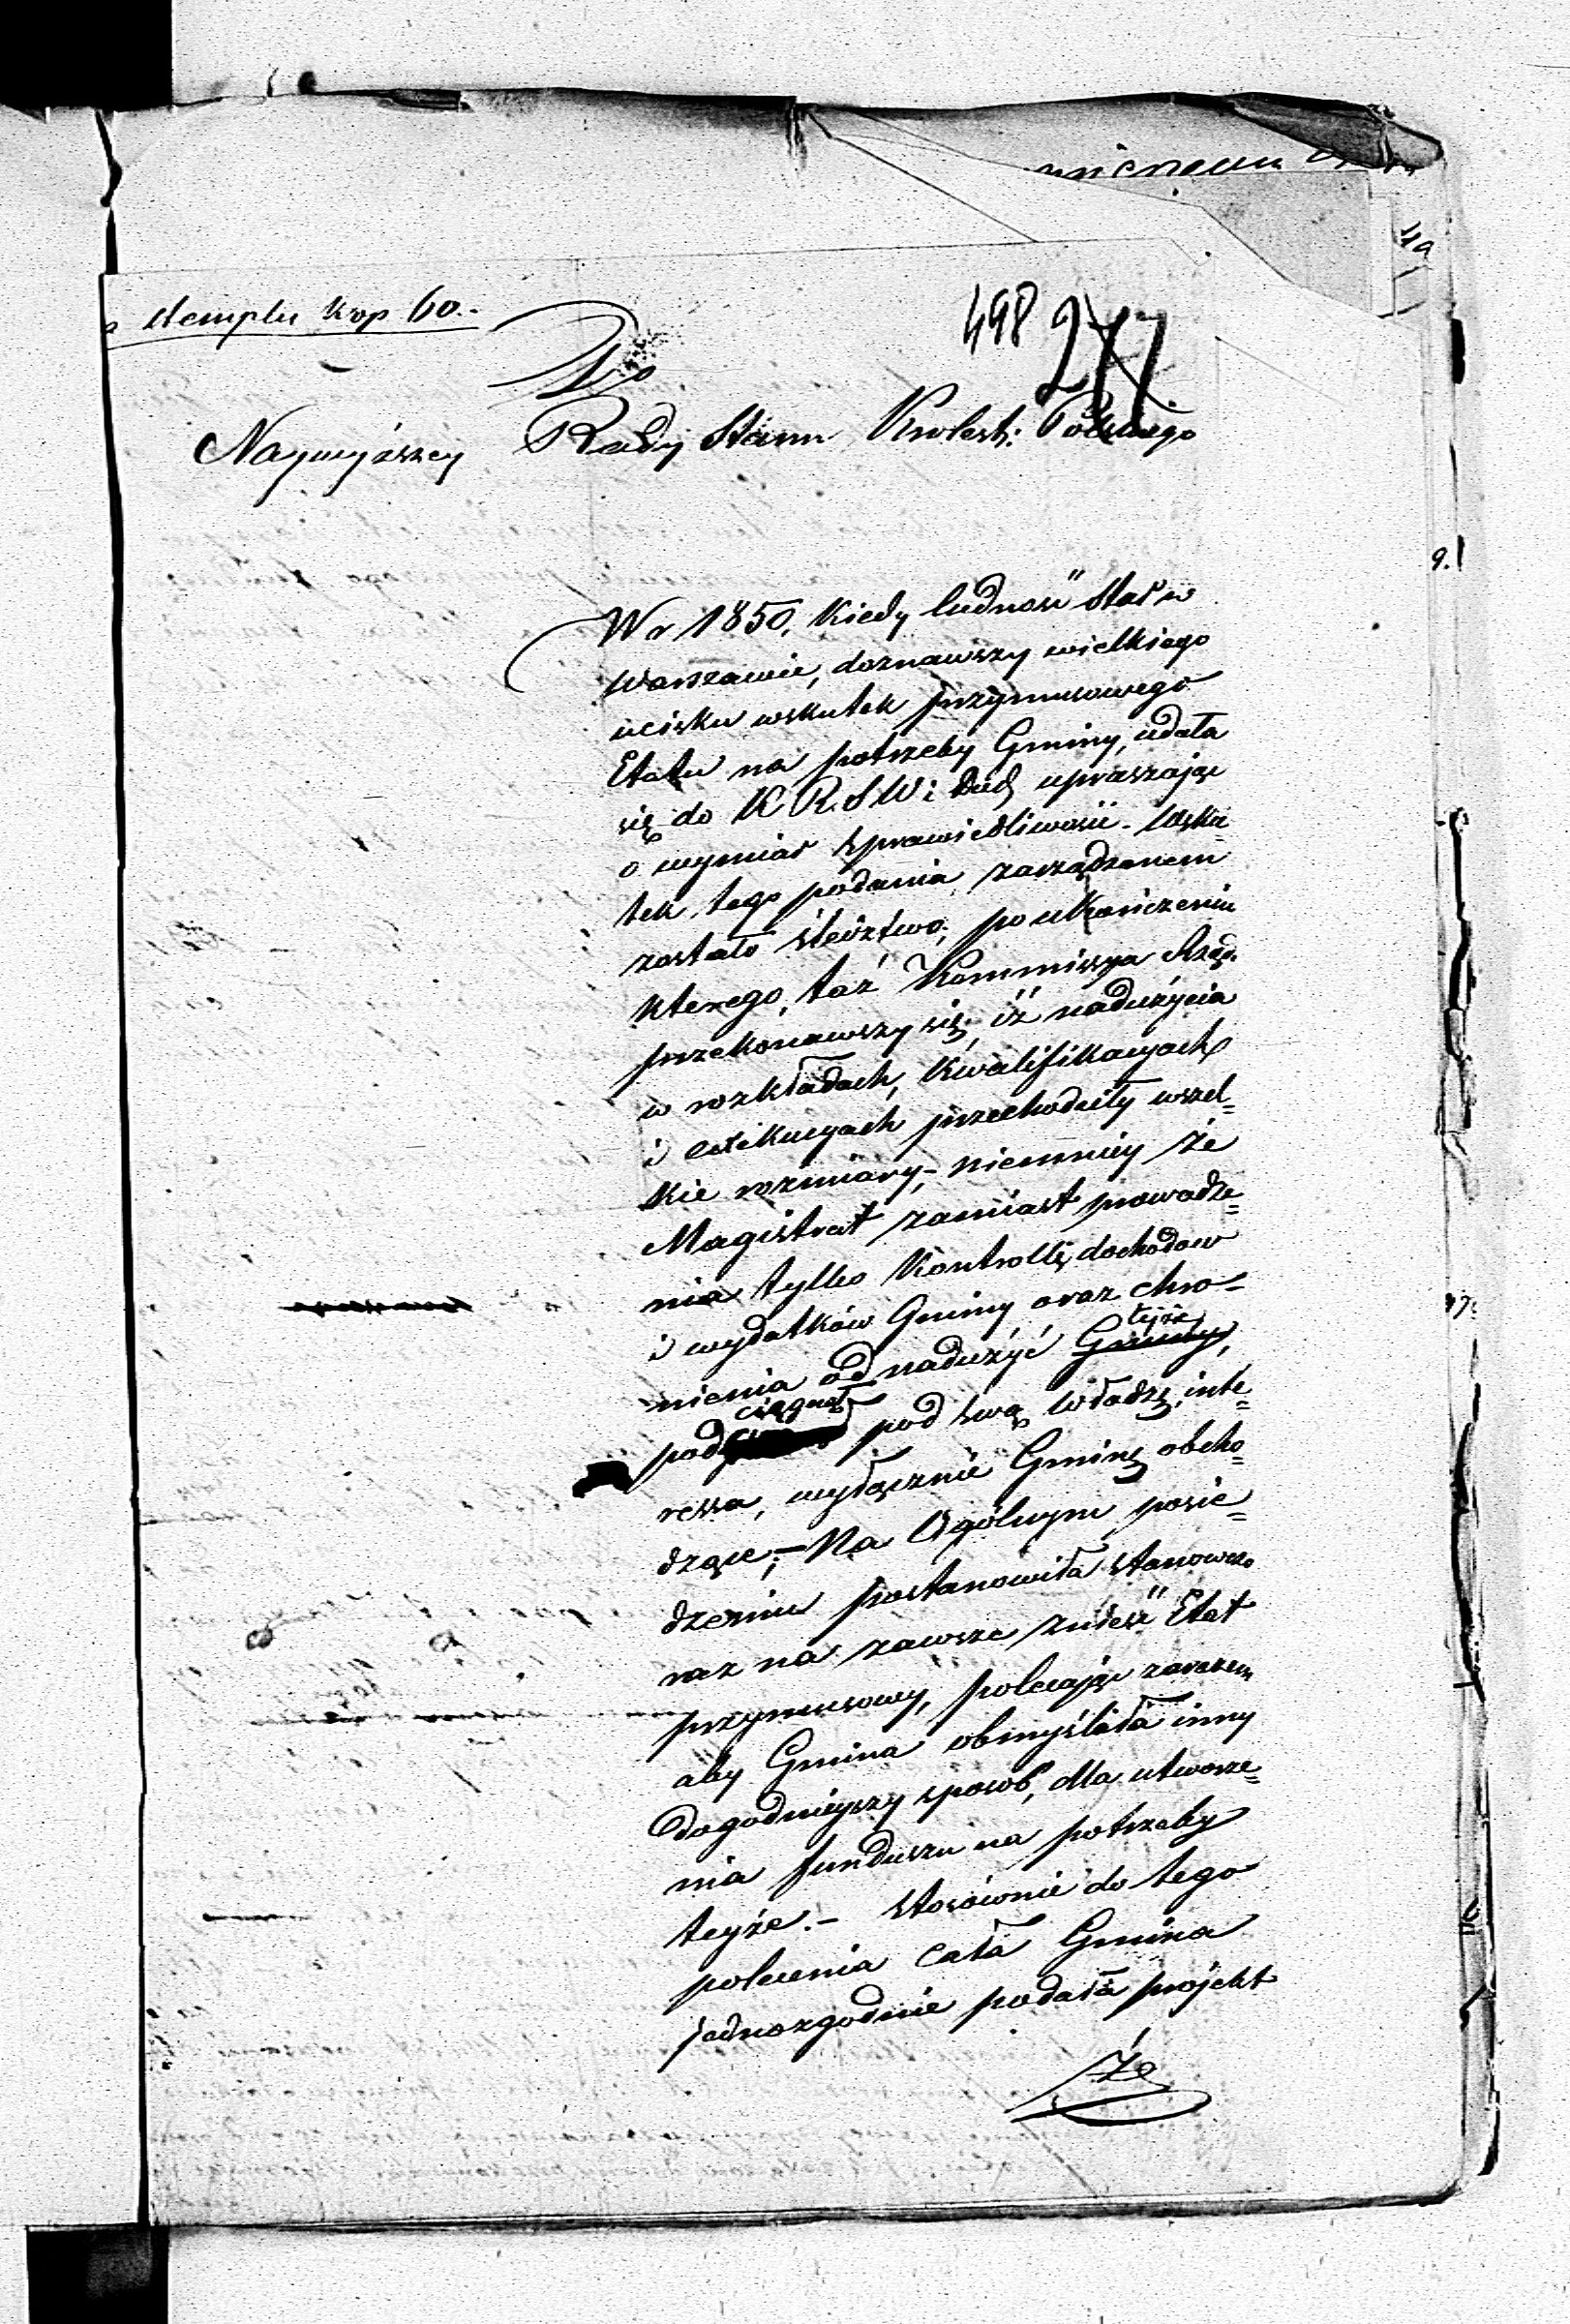 stemplu kop 60.-
498 277
Do
Naywyższey Rady Stanu Krolest: Polskiego
W r 1850, kiedy ludność Star w
Warszawie, doznawszy wielkiego
ucisku wskutek przymusowego
Etatu na potrzeby Gminy, udała
się do K R. S W i Duch upraszając
o wymiar sprawiedliwości. Wsku=
tek tego podania zarządzonem
zostało śledztwo; po ukończeniu
kterego, taż Kommissya Rząd.
przekonawszy się, iż nadużycia
w rozkładach, kwalifikacyach
i exekucyach przechodziły wszel=
kie rozmiary,- niemniey że
Magistrat zamiast prowadze=
nia tylko Kontrollę dochodow
i wydatków Gminy oraz chro=
nienia od nadużyć Gminy, tejże
podciągnął pod swą władzę, inte=
ressa, wyłącznie Gminę obcho=
dzące;- Na Ogólnym posie=
dzeniu postanowiła stanowczo
raz na zawsze znieść Etat
przymusowy, polecając zarazem
aby Gmina obmyślała inny
dogodnieyszy sposób, dla utworze=
nia funduszu na potrzeby
teyże.- Stosównie do tego
polecenia cała Gmina
jednozgodnie podała projekt
że